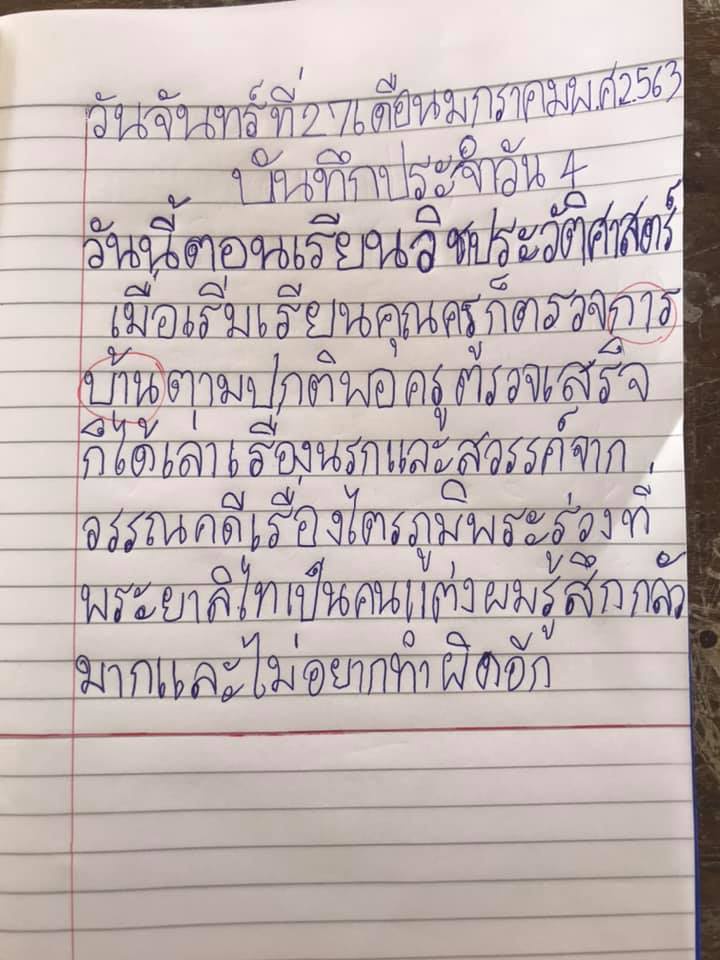 วันจันทร์ที่27เดือนมกราคมพ.ศ2563
บันทึกประจำวัน 4
วันนี้ตอนเรียนวิชประวัติศาสตร์
เมื่อเริ่มเรียนคุณครูก็ตรวจการ
บ้านตามปกติพอครูตรวจเสร็จ
ก็ได้เล่าเรื่องนรกและสวรรค์จาก
วรรณคดีเรื่องไตรภูมิพระร่วงที่
พระยาลิไทเป็นคนแต่งผมรู้สึกกลัว
มากและไม่อยากทำผิดอีก